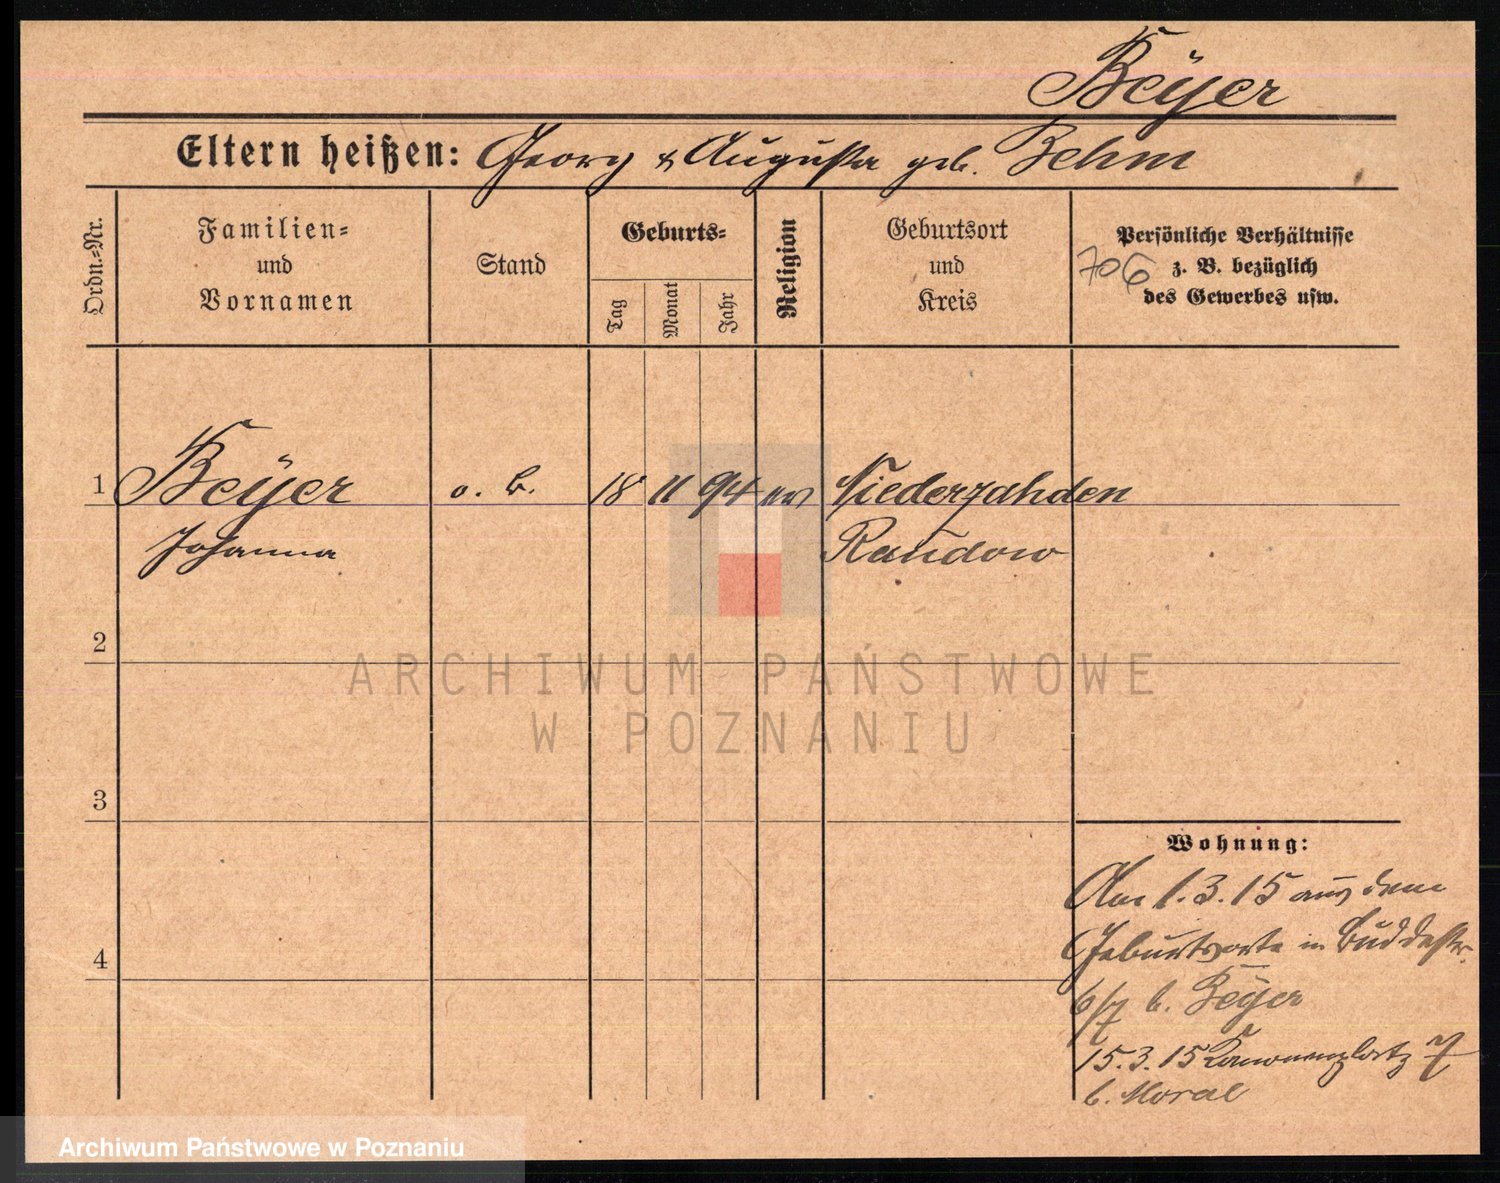 Beÿer
Eltern heißen: Georg & Augusta geb. Behm
Ordn.-Nr.
Familien-
und
Vornamen
Stand
Geburts-
Tag
Monat
Jahr
Religion
Geburtsort
und
Kreis
Persönliche Verhältnisse
z. B. bezüglich
des Gewerbes usw.
706
1 Beÿer o. B. 18 11 94 ev Niederzahden
Johanna Randow
2
3
4
Wohnung:
Am 1.3.15 aus dem
Geburtsorte in Buddestr.
6/7 b. Beÿer
15.3.15 Kanonenplatz 7
b. Moral
ARCHIWUM PAŃSTWOWE
W POZNANIU
Archiwum Państwowe w Poznaniu